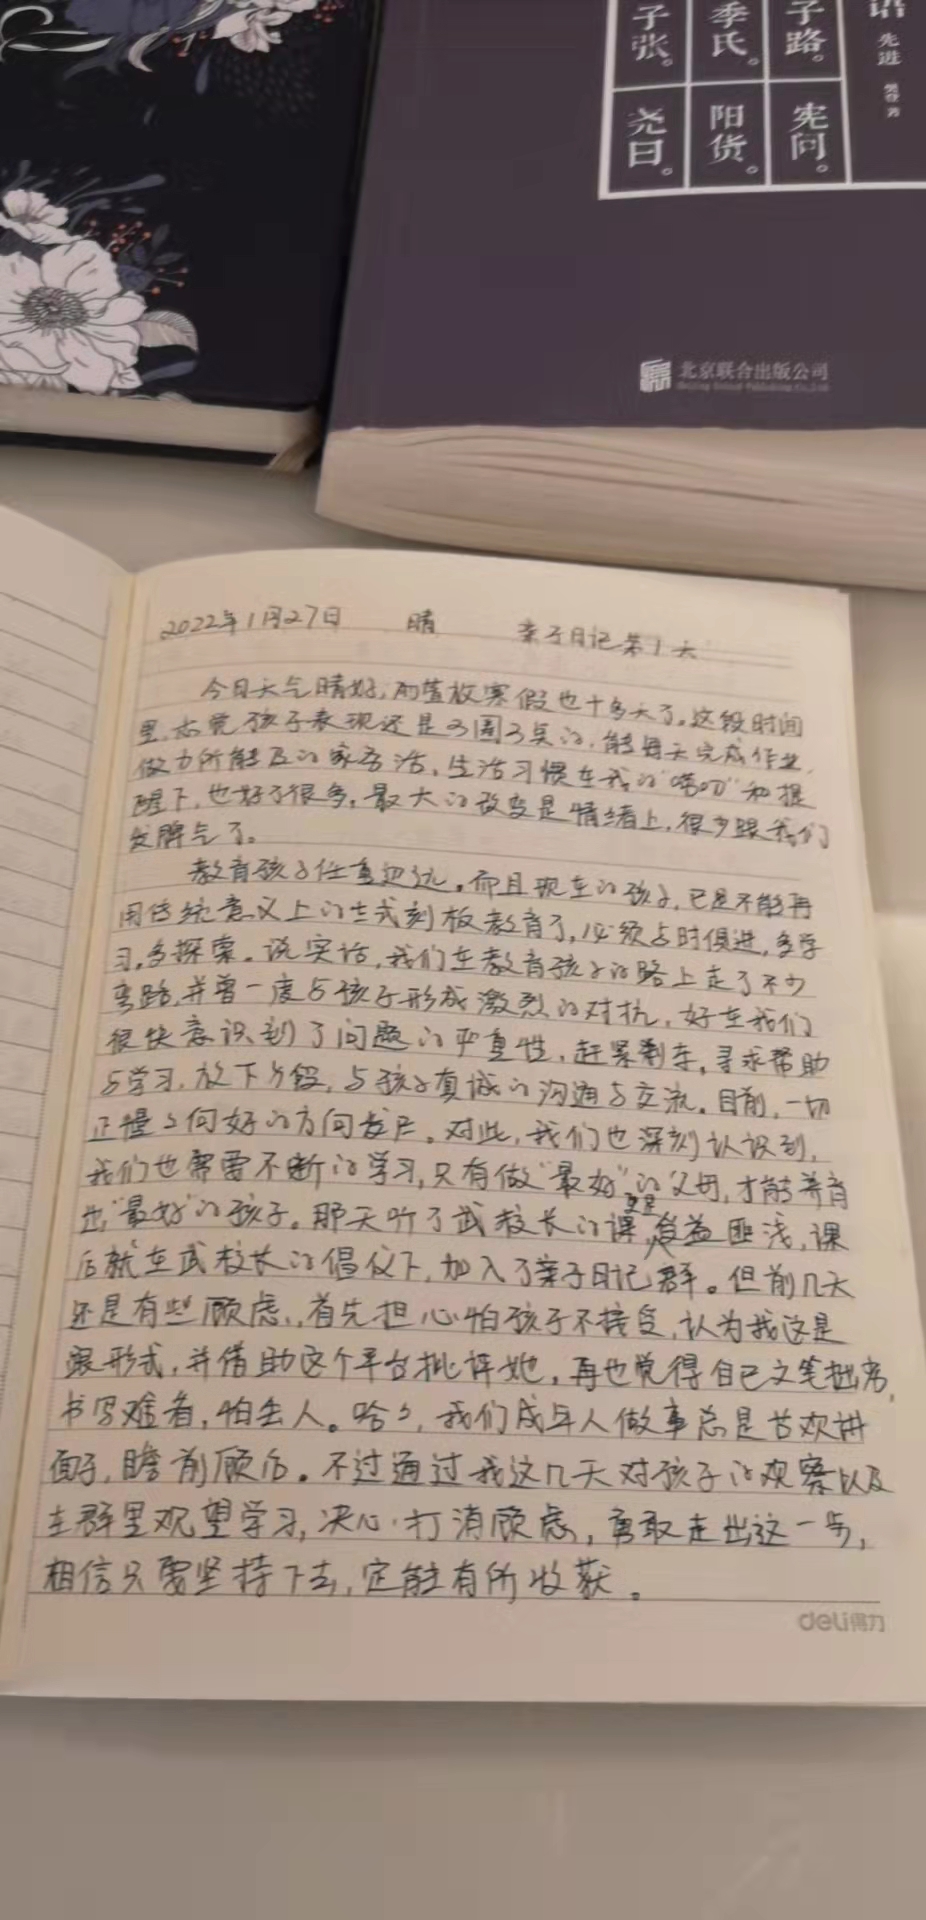 子张。
季氏。
子路。
语
先进
樊登 著
尧曰。
阳货。
宪问。
北京联合出版公司
2022年1月27日 晴 亲子日记第1天
今日天气晴好,放寒假也十多天了。这段时间
里,感觉孩子表现还是可圈可点的,能每天完成作业,
做力所能及的家务活,生活习惯在我的“唠叨”和提
醒下,也好了很多,最大的改变是情绪上,很少跟我们
发脾气了。
教育孩子任重道远。而且现在的孩子,已是不能再
用传统意义上的方式刻板教育了,必须与时俱进,多学
习,多探索。说实话,我们在教育孩子的路上走了不少
弯路,并曾一度与孩子形成激烈的对抗,好在我们
很快意识到了问题的严重性,赶紧刹车,寻求帮助
与学习,放下身段,与孩子真诚的沟通与交流。目前,一切
正慢慢向好的方向发展。对此,我们也深刻认识到,
我们也需要不断的学习,只有做“最好”的父母,才能养育
出“最好”的孩子。那天听了武校长的课,更是受益匪浅,课
后就在武校长的倡议下,加入了亲子日记群。但前几天
还是有些顾虑,首先担心怕孩子不接受,认为我这是
跟形式,并借助这个平台批评她,再也觉得自己文笔拙劣,
书写难看,怕丢人。哈哈,我们成年人做事总是喜欢讲
面子,瞻前顾后。不过通过我这几天对孩子的观察以及
在群里观望学习,决心打消顾虑,勇敢走出这一步,
相信只要坚持下去,定能有所收获。
deli得力